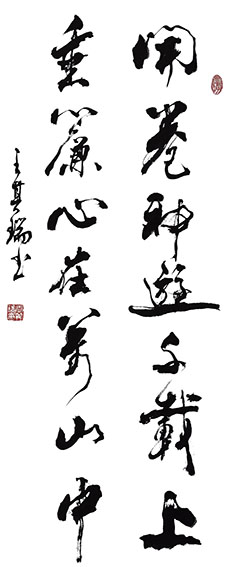 開卷神遊千載上
垂簾心在萬山中
王其瑞书